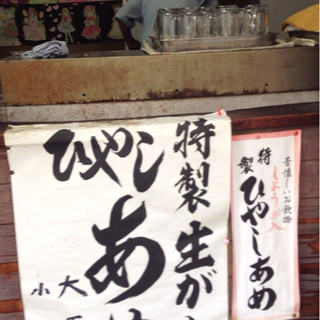 特製生が
ひやしあ
大
小
昔懐しいお飲物
しょうが入
特製
ひやしあめ